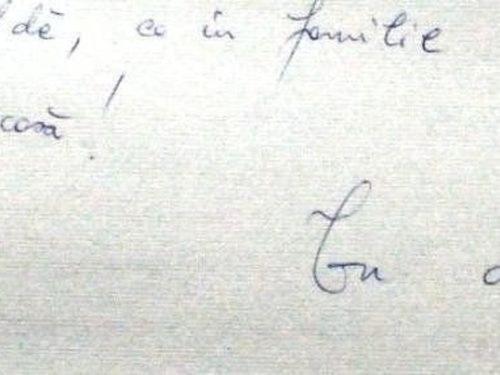 ldă, ca în familie
casă!
Cu